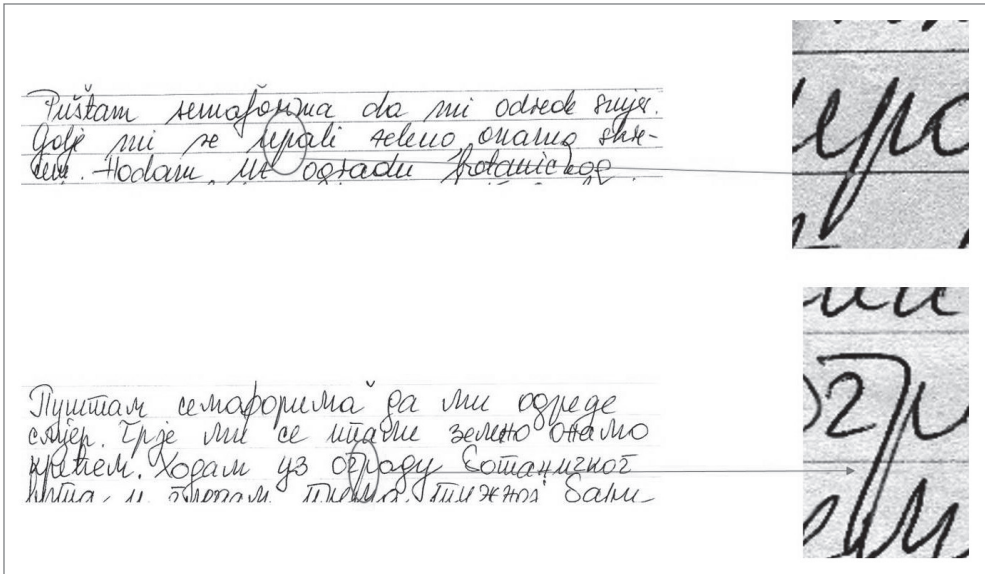 Puštam semaforima da mi odrede smjer.
Gdje mi se upali zeleno onamo skre-
ćem. Hodam uz ogradu botaničkog
Пуштам семафорима да ми одреде
смјер. Гдје ми се упали зелено онамо
крећем. Ходам уз ограду ботаничког